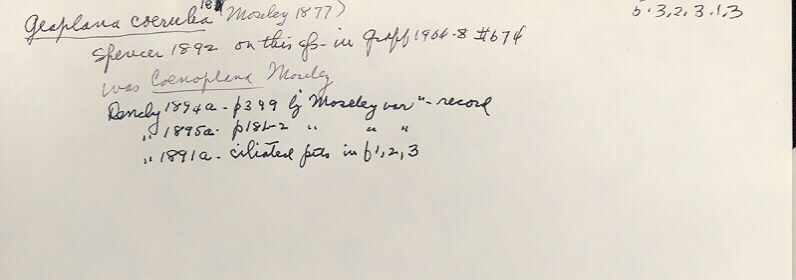 Geoplana coerulea (Moseley 1877) 5.3,2,3.1,3
Spencer 1892 on this sp- in Graff 1904-8 #674
was Coenoplana Moseley
Dendy 1894a - p399 "Moseley var" - record
" 1895a - p181-2 " " "
" 1891a - ciliated pits in f1,2,3